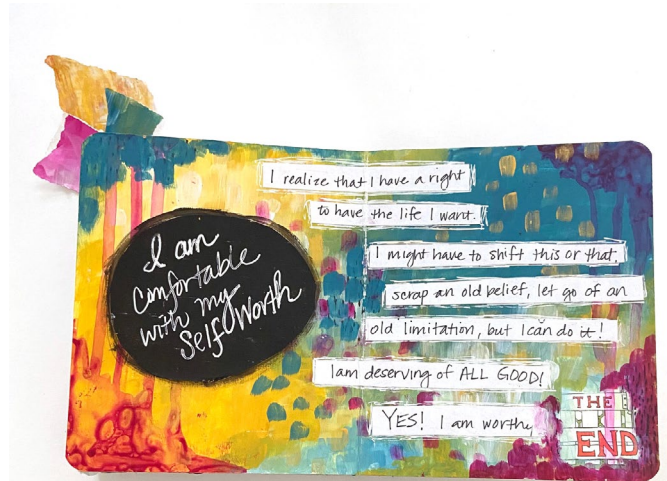 I am
comfortable
with my
Self Worth
I realize that I have a right
to have the life I want.
I might have to shift this or that,
scrap an old belief, let go of an
old limitation, but I can do it!
I am deserving of ALL GOOD!
YES! I am worthy
THE
END